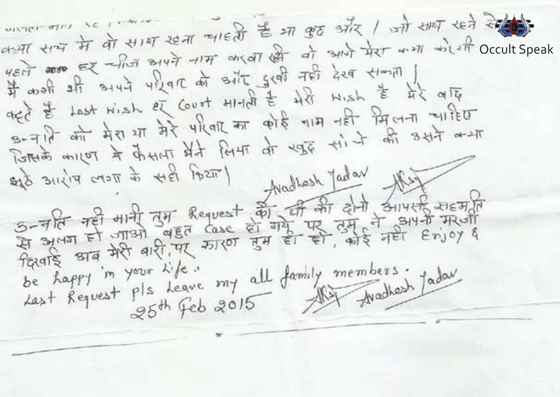 क्या सच में वो साथ रहना चाहती है या कुछ और / जो साथ रहने से
Occult Speak
पहले हर चीज अपने नाम करवा रही वो आगे मेरा क्या करेगी
मैं कभी भी अपने परिवार को और दुखी नहीं देख सकता /
कहते है Last wish हर Court मानती है मेरी wish है मेरे बाद
उन्नति को मेरा या मेरे परिवार का कोई नाम नहीं मिलना चाहिए
जिसके कारण ये फैसला मैंने लिया वो खुद सोचे की उसने क्या
झूठे आरोप लगा के सही किया /
Avadhesh Yadav
उन्नति नहीं मानी तुम Request की थी की दोनो आपसी सहमति
से अलग हो जाओ बहुत Case हो गये पर तुम ने अपनी मरजी
दिखाई अब मेरी बारी, पर कारण तुम ही हो, कोई नहीं Enjoy &
be happy in your Life..
Last Request pls Leave my all family members.
25th Feb 2015
Avadhesh Yadav